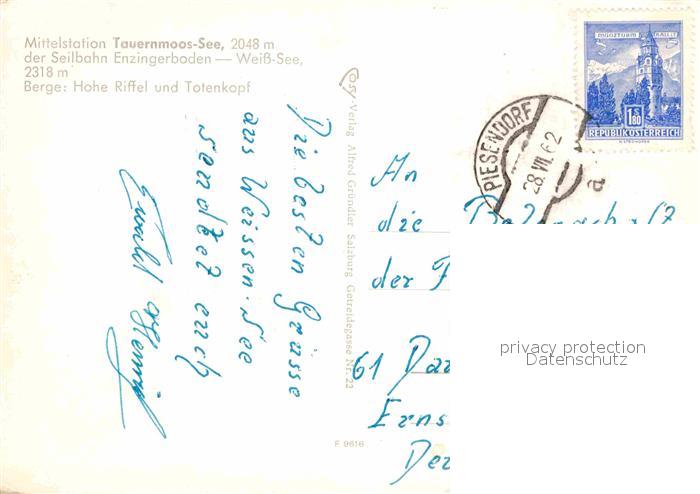 Mittelstation Tauernmoos-See, 2048 m
der Seilbahn Enzingerboden — Weiß-See,
2318 m
Berge: Hohe Riffel und Totenkopf
Die besten Grüsse
aus Weissen-See
sendet euch
Cosy-Verlag Alfred Gründler Salzburg, Getreidegasse Nr. 22
F 9616
MÜNZTURM HALL i. T.
1.80
REPUBLIK ÖSTERREICH
PIESENDORF
28.VII.62
a
An
die
der F
61 Dar
Erns
Der
privacy protection
Datenschutz